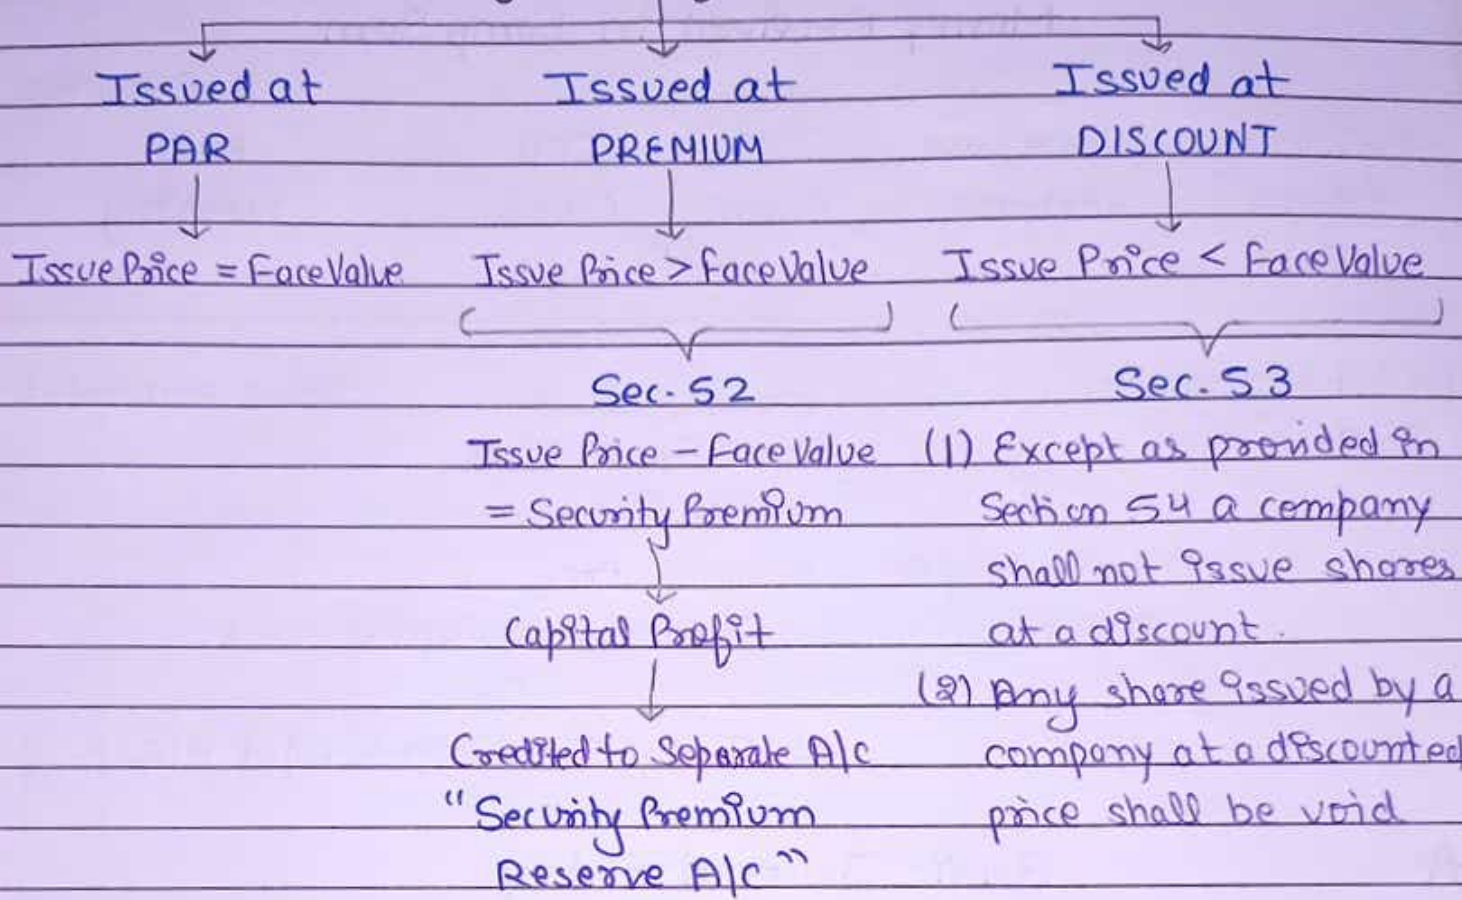 Issued at
PAR
Issue Price = Face Value
Issued at
PREMIUM
Issue Price > Face Value
Sec. 52
Issue Price - Face Value
= Security Premium
Capital Profit
Credited to Separate A/c
"Security Premium
Reserve A/c"
Issued at
DISCOUNT
Issue Price < Face Value
Sec. 53
(1) Except as provided in
Section 54 a company
shall not issue shares
at a discount.
(2) Any share issued by a
company at a discounted
price shall be void